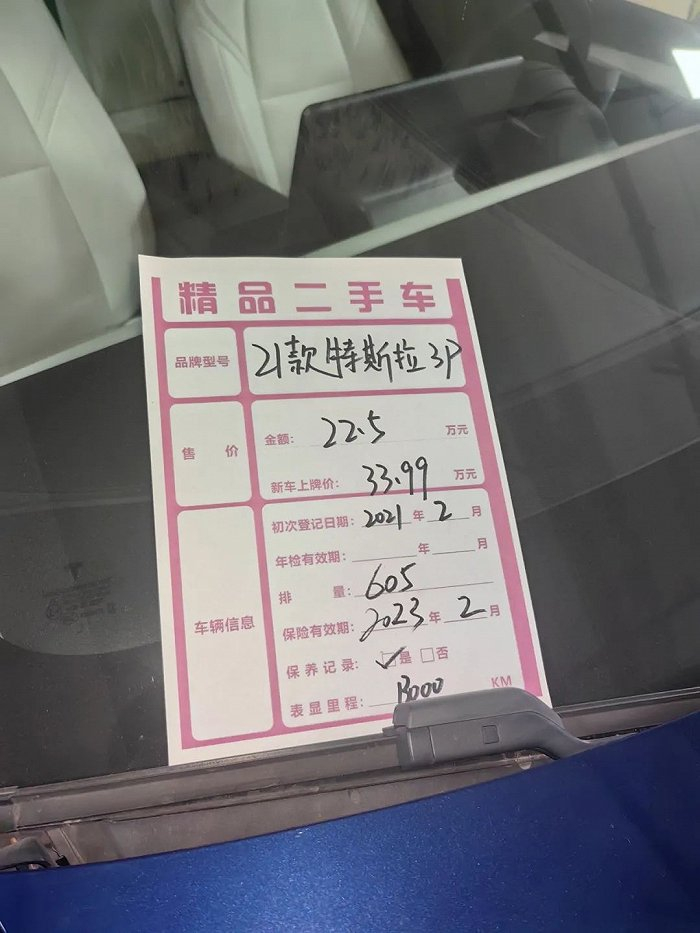 精品二手车
品牌型号 21款特斯拉3P
售价 金额: 22.5 万元
新车上牌价: 33.99 万元
车辆信息 初次登记日期: 2021 年 2 月
年检有效期: 年 月
排量: 605
保险有效期: 2023 年 2 月
保养记录: ✓是 □否
表显里程: 13000 KM